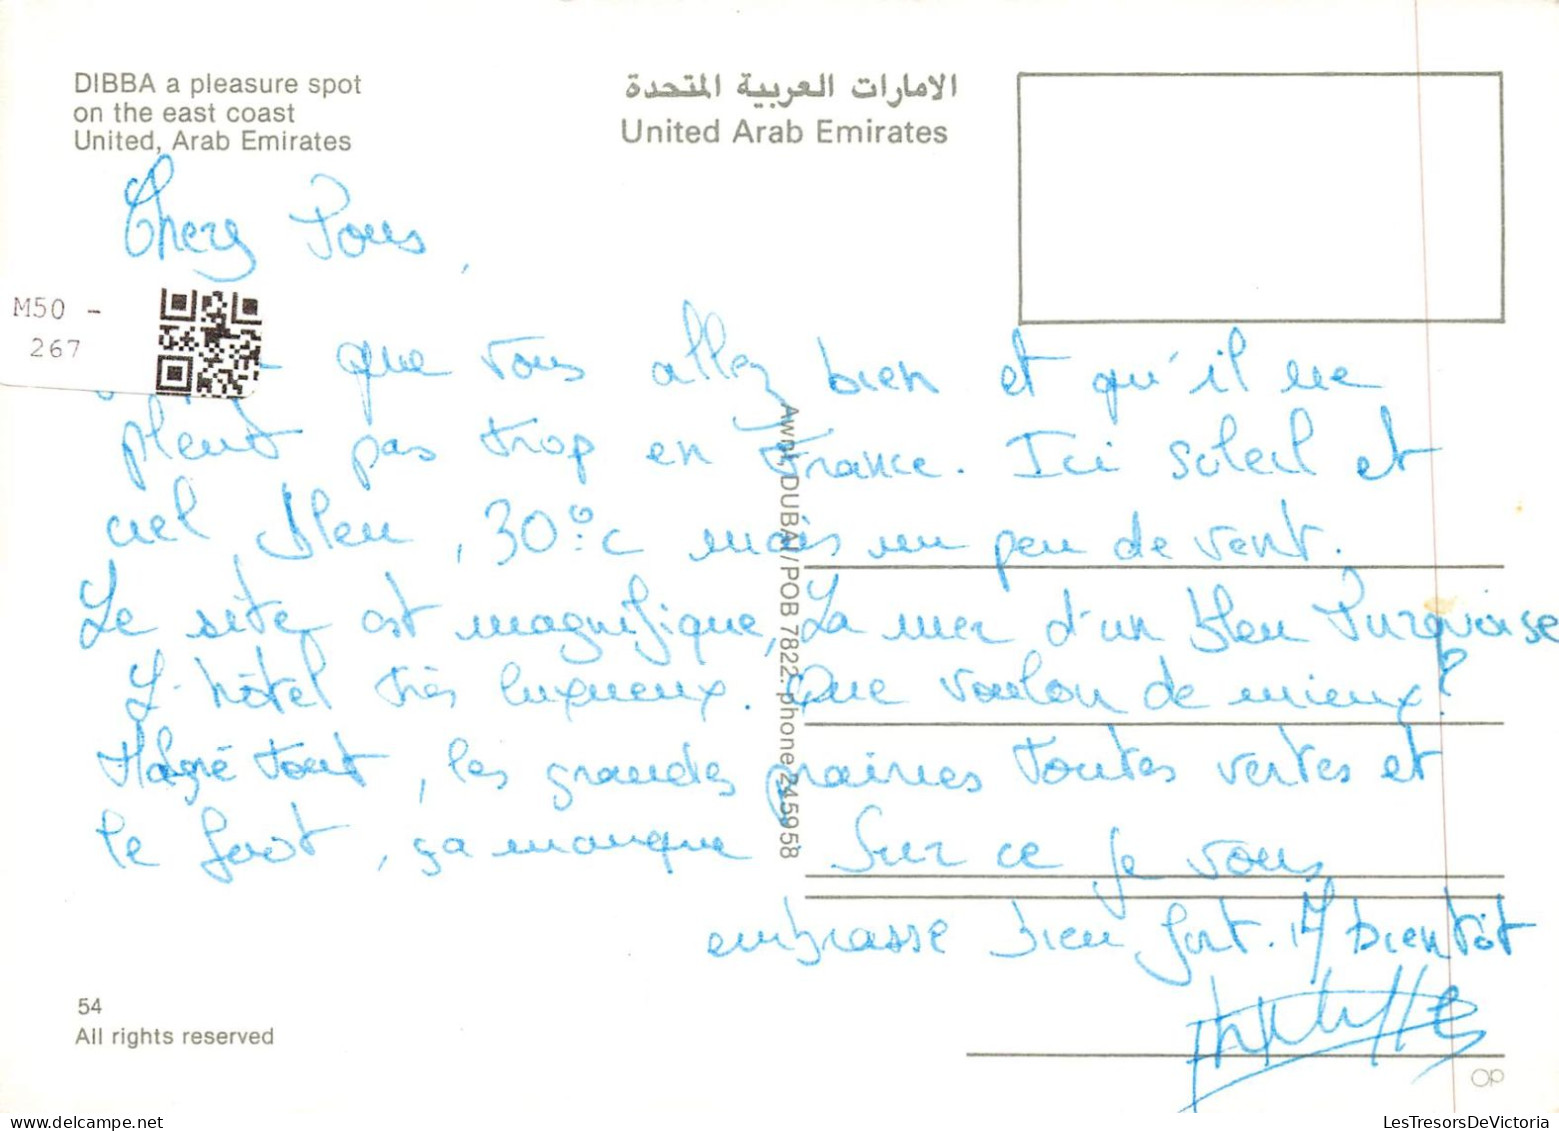 DIBBA a pleasure spot
on the east coast
United, Arab Emirates
الامارات العربية المتحدة
United Arab Emirates
Chers Tous,
M50 -
267
que vous allez bien et qu'il ne
pleut pas trop en France. Ici soleil et
ciel bleu, 30°c mais un peu de vent.
Le site est magnifique, La mer d'un bleu Turquoise
L'hôtel très luxueux. Que vouloir de mieux?
Malgré tout, les grandes prairies toutes vertes et
le foot, ça manque Sur ce je vous
embrasse bien fort. A bientôt
Awni, DUBAI/POB 7822. phone 245958
54
All rights reserved
OP
LesTresorsDeVictoria